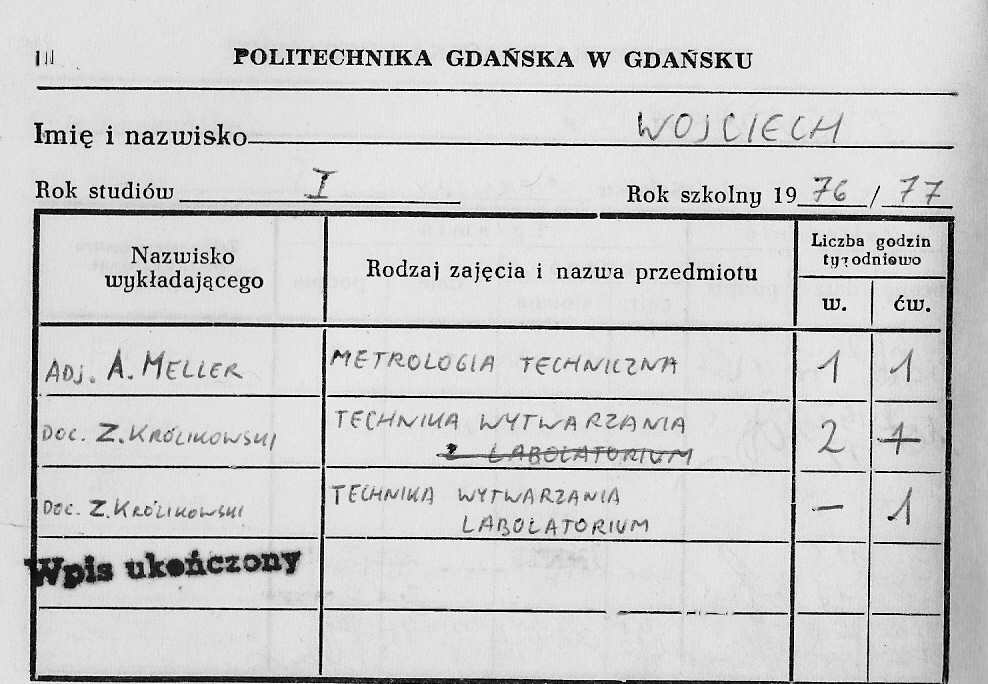 POLITECHNIKA GDAŃSKA W GDAŃSKU
Imię i nazwisko WOJCIECH
Rok studiów I Rok szkolny 1976/77
Nazwisko wykładającego
Rodzaj zajęcia i nazwa przedmiotu
Liczba godzin
tygodniowo
w. ćw.
ADJ. A. MELLER METROLOGIA TECHNICZNA 1 1
DOC. Z. KRÓLIKOWSKI TECHNIKA WYTWARZANIA 2
Z LABOLATORIUM
DOC. Z. KRÓLIKOWSKI TECHNIKA WYTWARZANIA – 1
LABOLATORIUM
Wpis ukończony